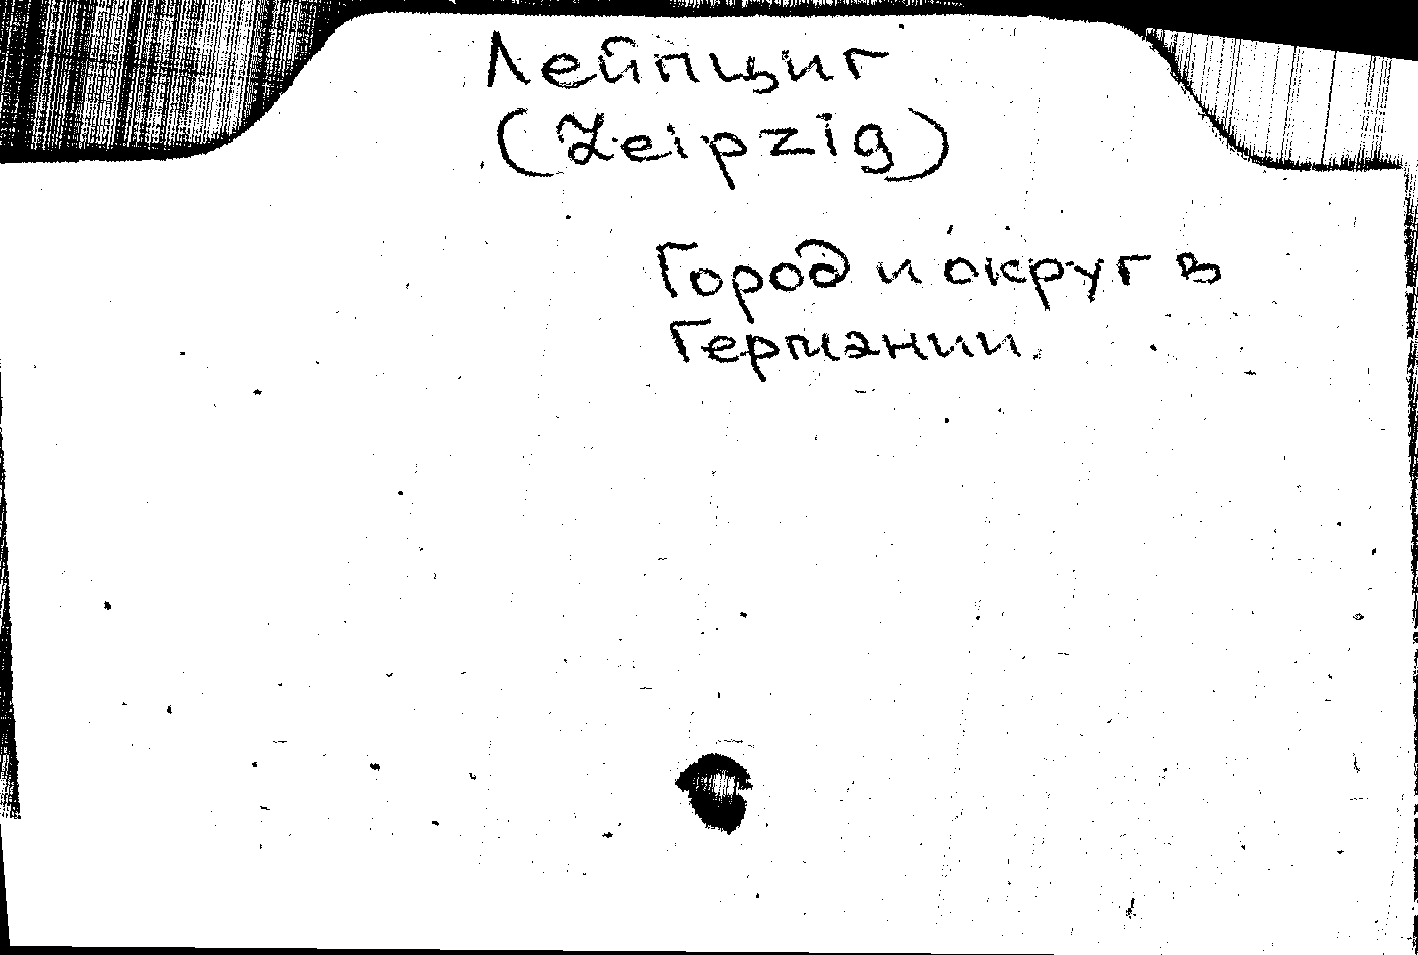 Лейпциг
(Leipzig)
Город и округ в
Германии.